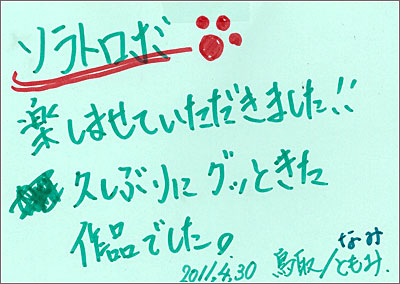 ソラトロボ
楽しませていただきました!!
久しぶりにグッときた
作品でした。
なみ
2011.4.30 鳥取/ともみ.